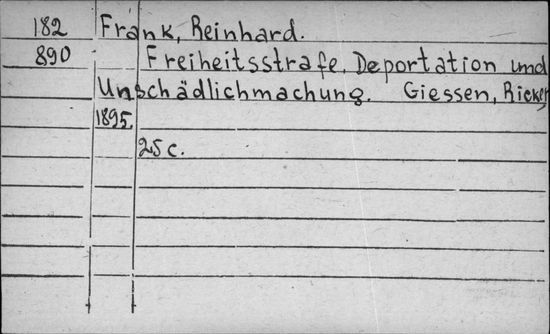 182 Frank, Reinhard.
890 Freiheitsstrafe, Deportation und
Unschädlichmachung. Giessen, Ricker,
1895.
25 c.